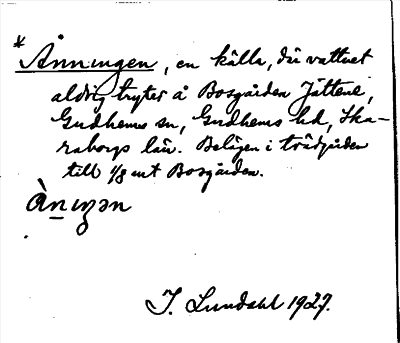 * Ånningen, en källa, där vattnet
aldrig tryter å Bosgården Jättene,
Gudhems sn, Gudhems hd, Ska-
raborgs län. Belägen i trädgården
till 1/8 mt Bosgården.
Ànıŋən
I. Lundahl 1927.